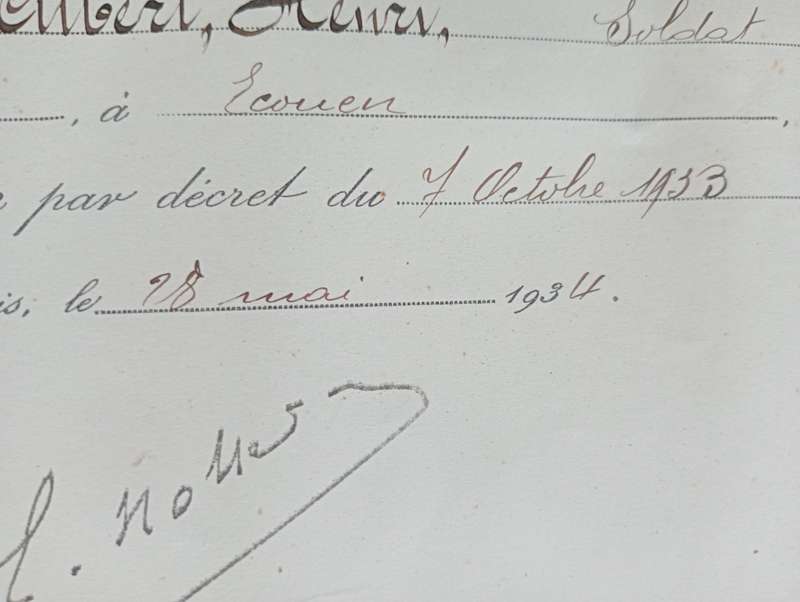 Henri, Soldat
, à Ecouen ,
par décret du 7 Octobre 1933
is, le 28 mai 1934.